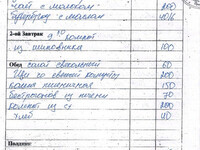 чай с молоком 200
бутерброд с маслом 40/6
2-ой Завтрак 9 30 компот
из шиповника 100
Обед салат свекольный 60
Щи со свежей капусты 200
каша пшеничная 150
из печени 70
компот из с/ф 200
хлеб 40
Полдник